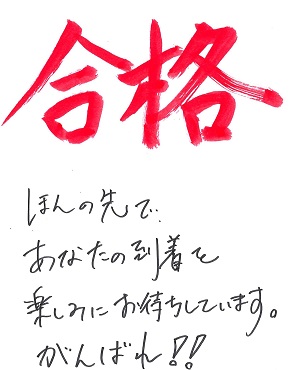 合格
ほんの先で、
あなたの到着を
楽しみにお待ちしています。
がんばれ!!